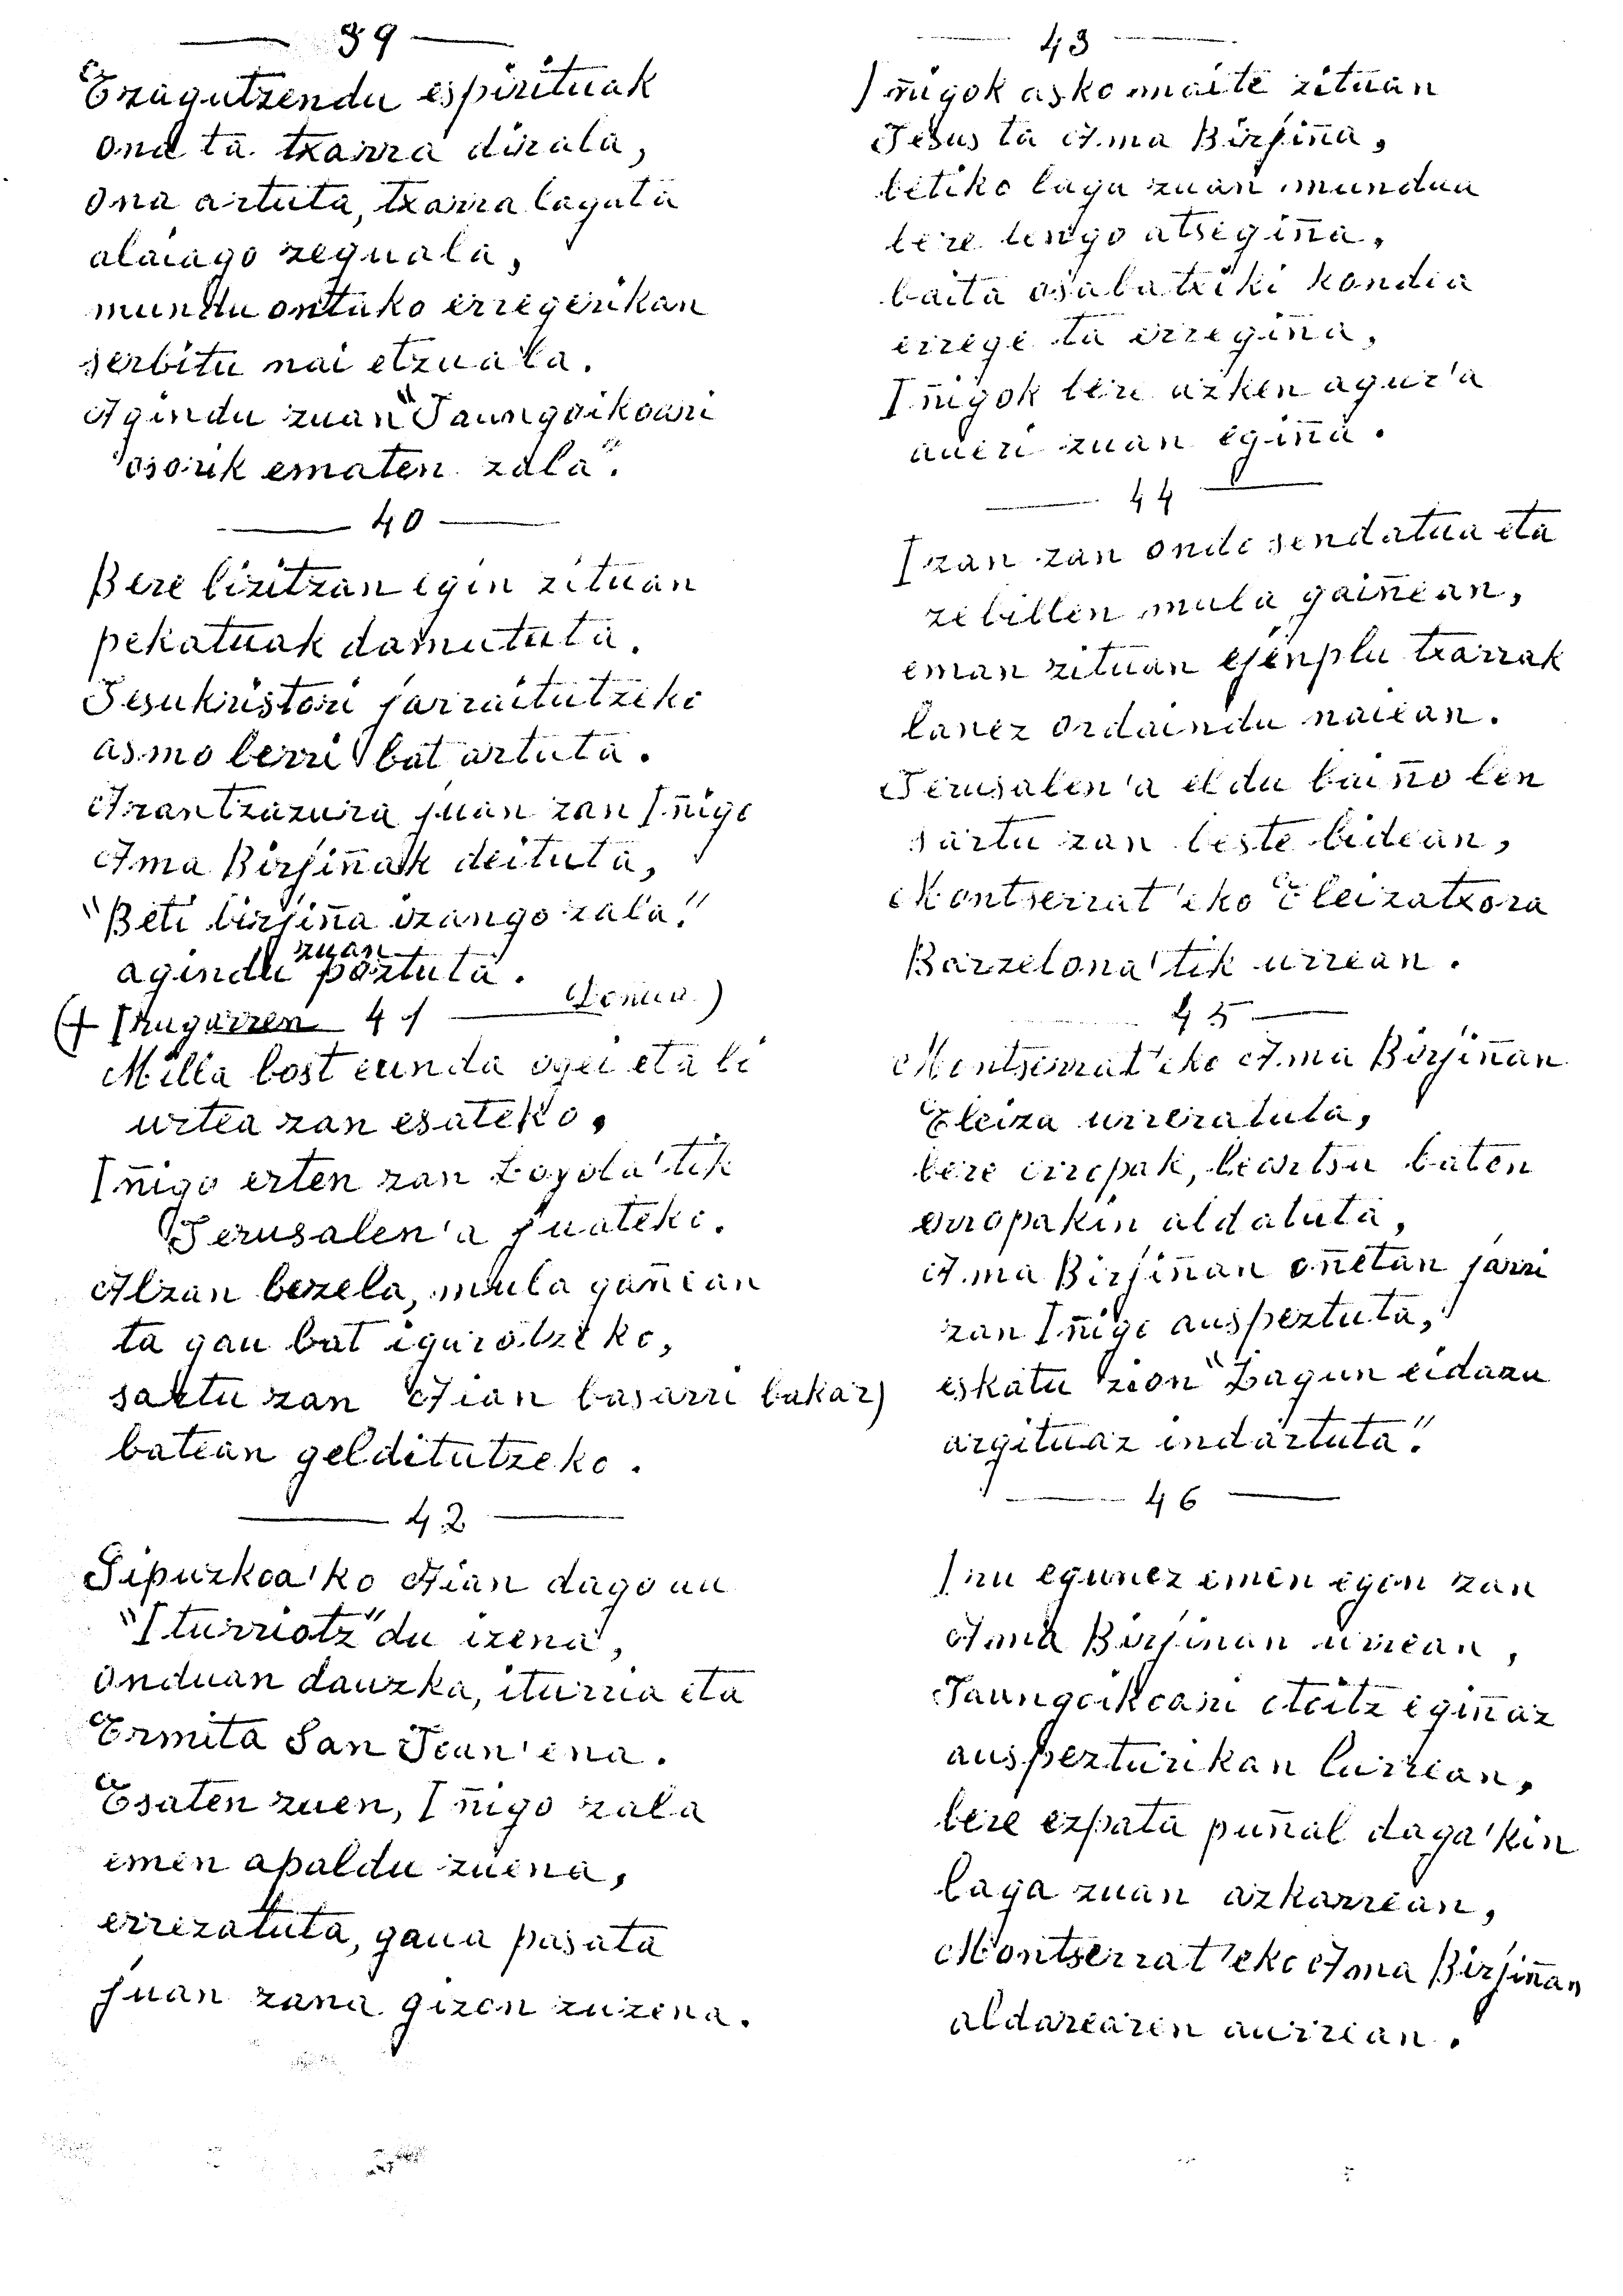 39
Ezagutzendu espirituak
ona ta txarra dirala,
ona artuta, txarra lagata
alaiago zeguala,
mundu ontako erregerikan
serbitu nai etzuala.
Agindu zuan "Jaungoikoari
osorik ematen zala".
40
Bere bizitzan egin zituan
pekatuak damututa.
Jesukristori jarraitutzeko
asmo berri bat artuta.
Arantzazura juan zan Iñigo
Ama Birjiñak deituta,
"Beti birjiña izango zala"
agindu zuan poztuta.
(+ Irugarren 41 Domua)
Milla bosteunda ogei eta bi
urtea zan esateko,
Iñigo erten zan Loyola'tik
Jerusalen'a juateko.
Alzan bezela, mula gañean
ta gau bat igarotzeko,
sartu zan Aian basarri bakar)
batean gelditutzeko.
42
Gipuzkoa'ko Aian dagoan
"Iturriotz" du izena,
onduan dauzka, iturria eta
Ermita San Joan'ena.
Esaten zuen, Iñigo zala
emen apaldu zuena,
errezatuta, gaua pasata
juan zana gizon zuzena.
43
Iñigok asko maite zituan
Jesus ta Ama Birjiña,
betiko laga zuan mundua
bere lengo atsegiña,
baita osaba txiki kondia
errege ta erregiña,
Iñigok bere azken agur'a
aueri zuan egiña.
44
Izan zan ondo sendatua eta
zebillen mula gaiñean,
eman zituan ejenplu txarrak
lanez ordaindu naiean.
Jerusalen'a eldu baiño len
sartu zan beste bidean,
Montserrat'eko Eleizatxora
Barzelona'tik urrean.
45
Montserrat'eko Ama Birjiñan
Eleiza urreratuta,
bere erropak, beartsu baten
erropakin aldatuta,
Ama Birjiñan oñetan jarri
zan Iñigo auspeztuta,
eskatu zion "Lagun eidazu
argituaz indartuta".
46
Iru egunez emen egon zan
Ama Birjiñan urrean,
Jaungoikoari otoitz egiñaz
auspezturikan lurrean,
bere ezpata puñal daga'kin
laga zuan azkarrean,
Montserrat'eko Ama Birjiñan
aldarearen aurrean.